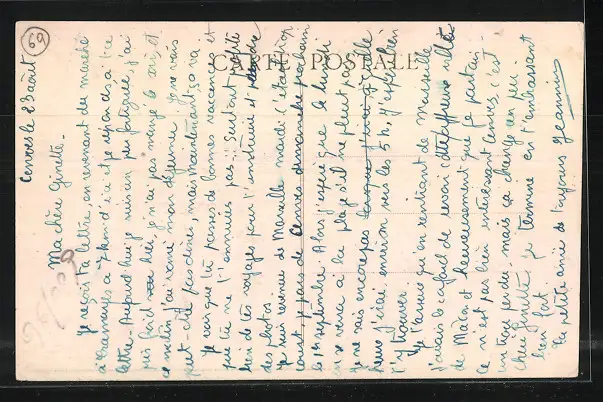 69
CARTE POSTALE
Cenves le 23 août
Ma chère Ginette.
Je reçois ta lettre, en revenant du marché
à Tramayes à 7 km d'ici et je réponds à ta
lettre. Aujourd'hui je suis un peu fatiguée, j'ai
pris froid hier, je n'ai pas mangé le soir, et
ce matin j'ai vomi mon déjeuner. Je ne vais
peut-être pas dîner, mais maintenant, ça va
Je vois que tu passes de bonnes vacances et
que tu ne t'ennuies pas. Surtout profite
bien de tes voyages pour t'instruire et prendre
des photos.
Je suis revenue de Marseille mardi (c'était trop
court) je pars de Cenves dimanche prochain
le 1er septembre. Alors j'espère que le lundi
on se verra à la plage s'il ne pleut pas.
Je ne sais encore pas
heure j'irai environ vers les 5 h. J'espère bien
t'y trouver.
Je t'assure qu'en rentrant de Marseille
j'avais le cafard de revoir
de Mâcon et heureusement que je partais
Ce n'est pas bien intéressant Cenves, c'est
un trou perdu, mais ça change un peu.
Chère Ginette, je termine en t'embrassant
bien fort.
Ta petite amie de
Jeannine